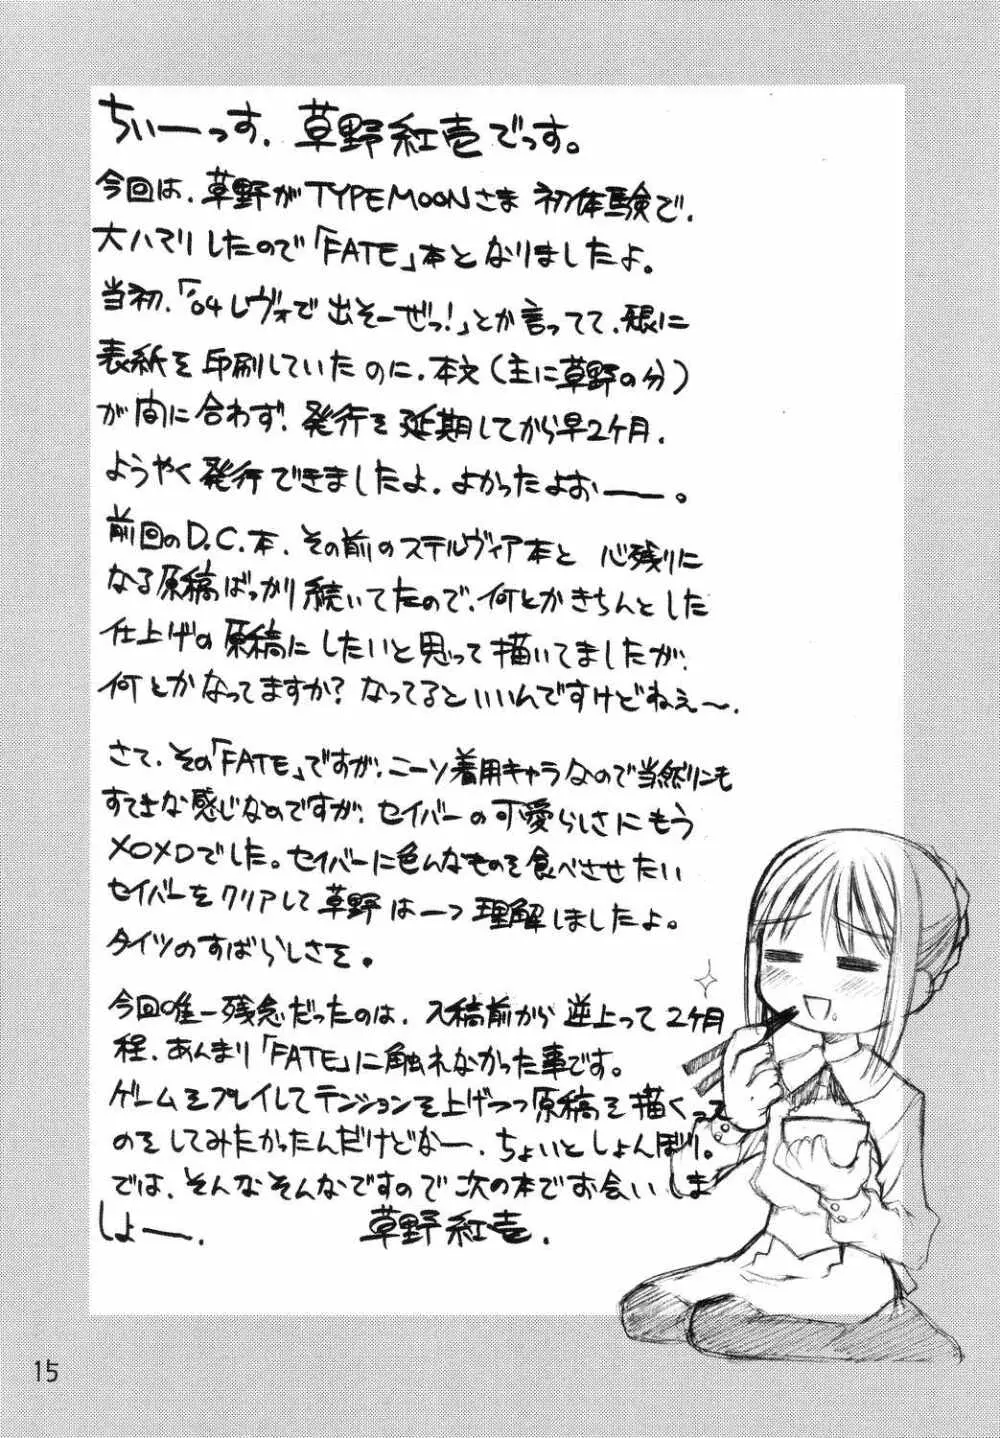 ちぃーっす、草野紅壱でっす。
今回は、草野がTYPEMOONさま 初体験で、
大ハマリしたので「FATE」本となりましたよ。
当初、「'04レヴォで出そーぜっ!」とか言ってて、現に
表紙を印刷していたのに、本文(主に草野の分)
が間に合わず、発行を延期してから早2ヶ月、
ようやく発行できましたよ、よかったよおーー。
前回のD.C.本、その前のステルヴィア本と 心残りに
なる原稿ばっかり続いてたので、何とかきちんとした
仕上げの原稿にしたいと思って描いてましたが、
何とかなってますか?なってるといいんですけどねぇ〜、
さて、その「FATE」ですが、ニーソ着用キャラなので当然凛も
すてきな感じなのですが、セイバーの可愛らしさにもう
XOXOでした。セイバーに色んなものを食べさせたい
セイバーをクリアして草野は一つ理解しましたよ。
タイツのすばらしさを。
今回唯一残念だったのは、入稿前から逆上って2ヶ月
程、あんまり「FATE」に触れなかった事です。
ゲームをプレイしてテンションを上げつつ原稿を描くって
のをしてみたかったんだけどなー、ちょいとしょんぼり。
では、そんなそんなですので次の本でお会いしま
しょー、 草野紅壱.
15